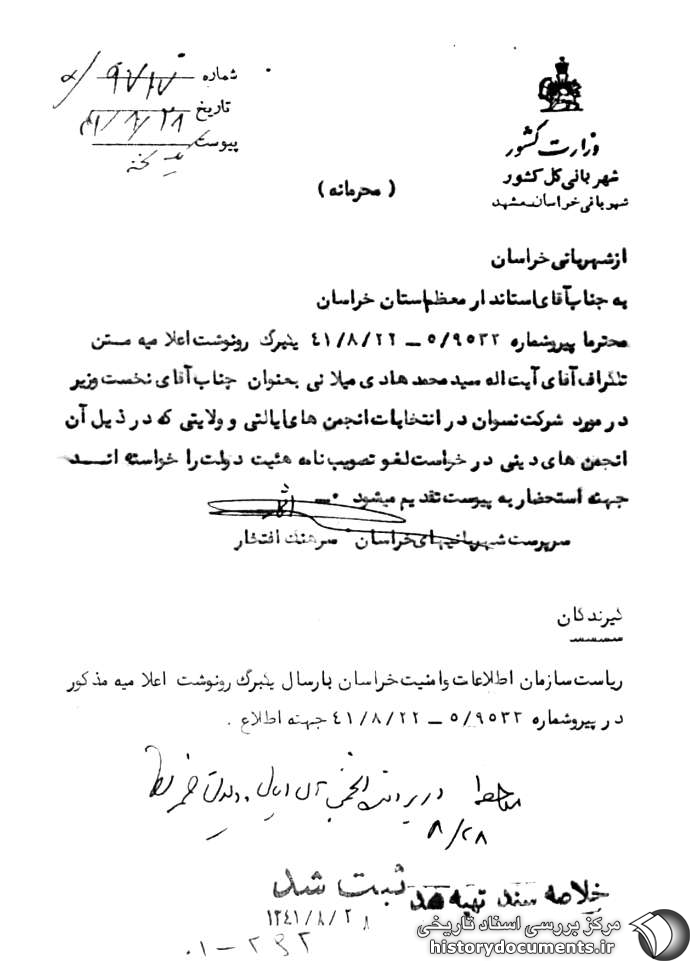 شماره ۹۷۱۷ / ۵
تاریخ ۴۱/۸/۲۸
پیوست
وزارت کشور
شهربانی کل کشور
شهربانی خراسان مشهد
( محرمانه )
از شهربانی خراسان
به جناب آقای استاندار معظم استان خراسان
محترما پیرو شماره ۵/۹۵۳۲ – ۴۱/۸/۲۲ یکبرگ رونوشت اعلامیه متن
تلگراف آقای آیت اله سید محمد هادی میلانی بعنوان جناب آقای نخست وزیر
در مورد شرکت نسوان در انتخابات انجمن های ایالتی و ولایتی که در ذیل آن
انجمن های دینی درخواست لغو تصویب نامه هیئت دولت را خواسته انــد
جهته استحضار به پیوست تقدیم میشود .
سرپرست شهربانیهای خراسان سرهنگ افتخار
گیرندگان
ریاست سازمان اطلاعات و امنیت خراسان بارسال یکبرگ رونوشت اعلامیه مذکور
در پیرو شماره ۵/۹۵۳۲ – ۴۱/۸/۲۲ جهته اطلاع .
۸/۲۸
خلاصه سند تهیه شد
ثبت شد
۱۳۴۱/۸/۲۸
مرکز بررسی اسناد تاریخی
historydocuments.ir